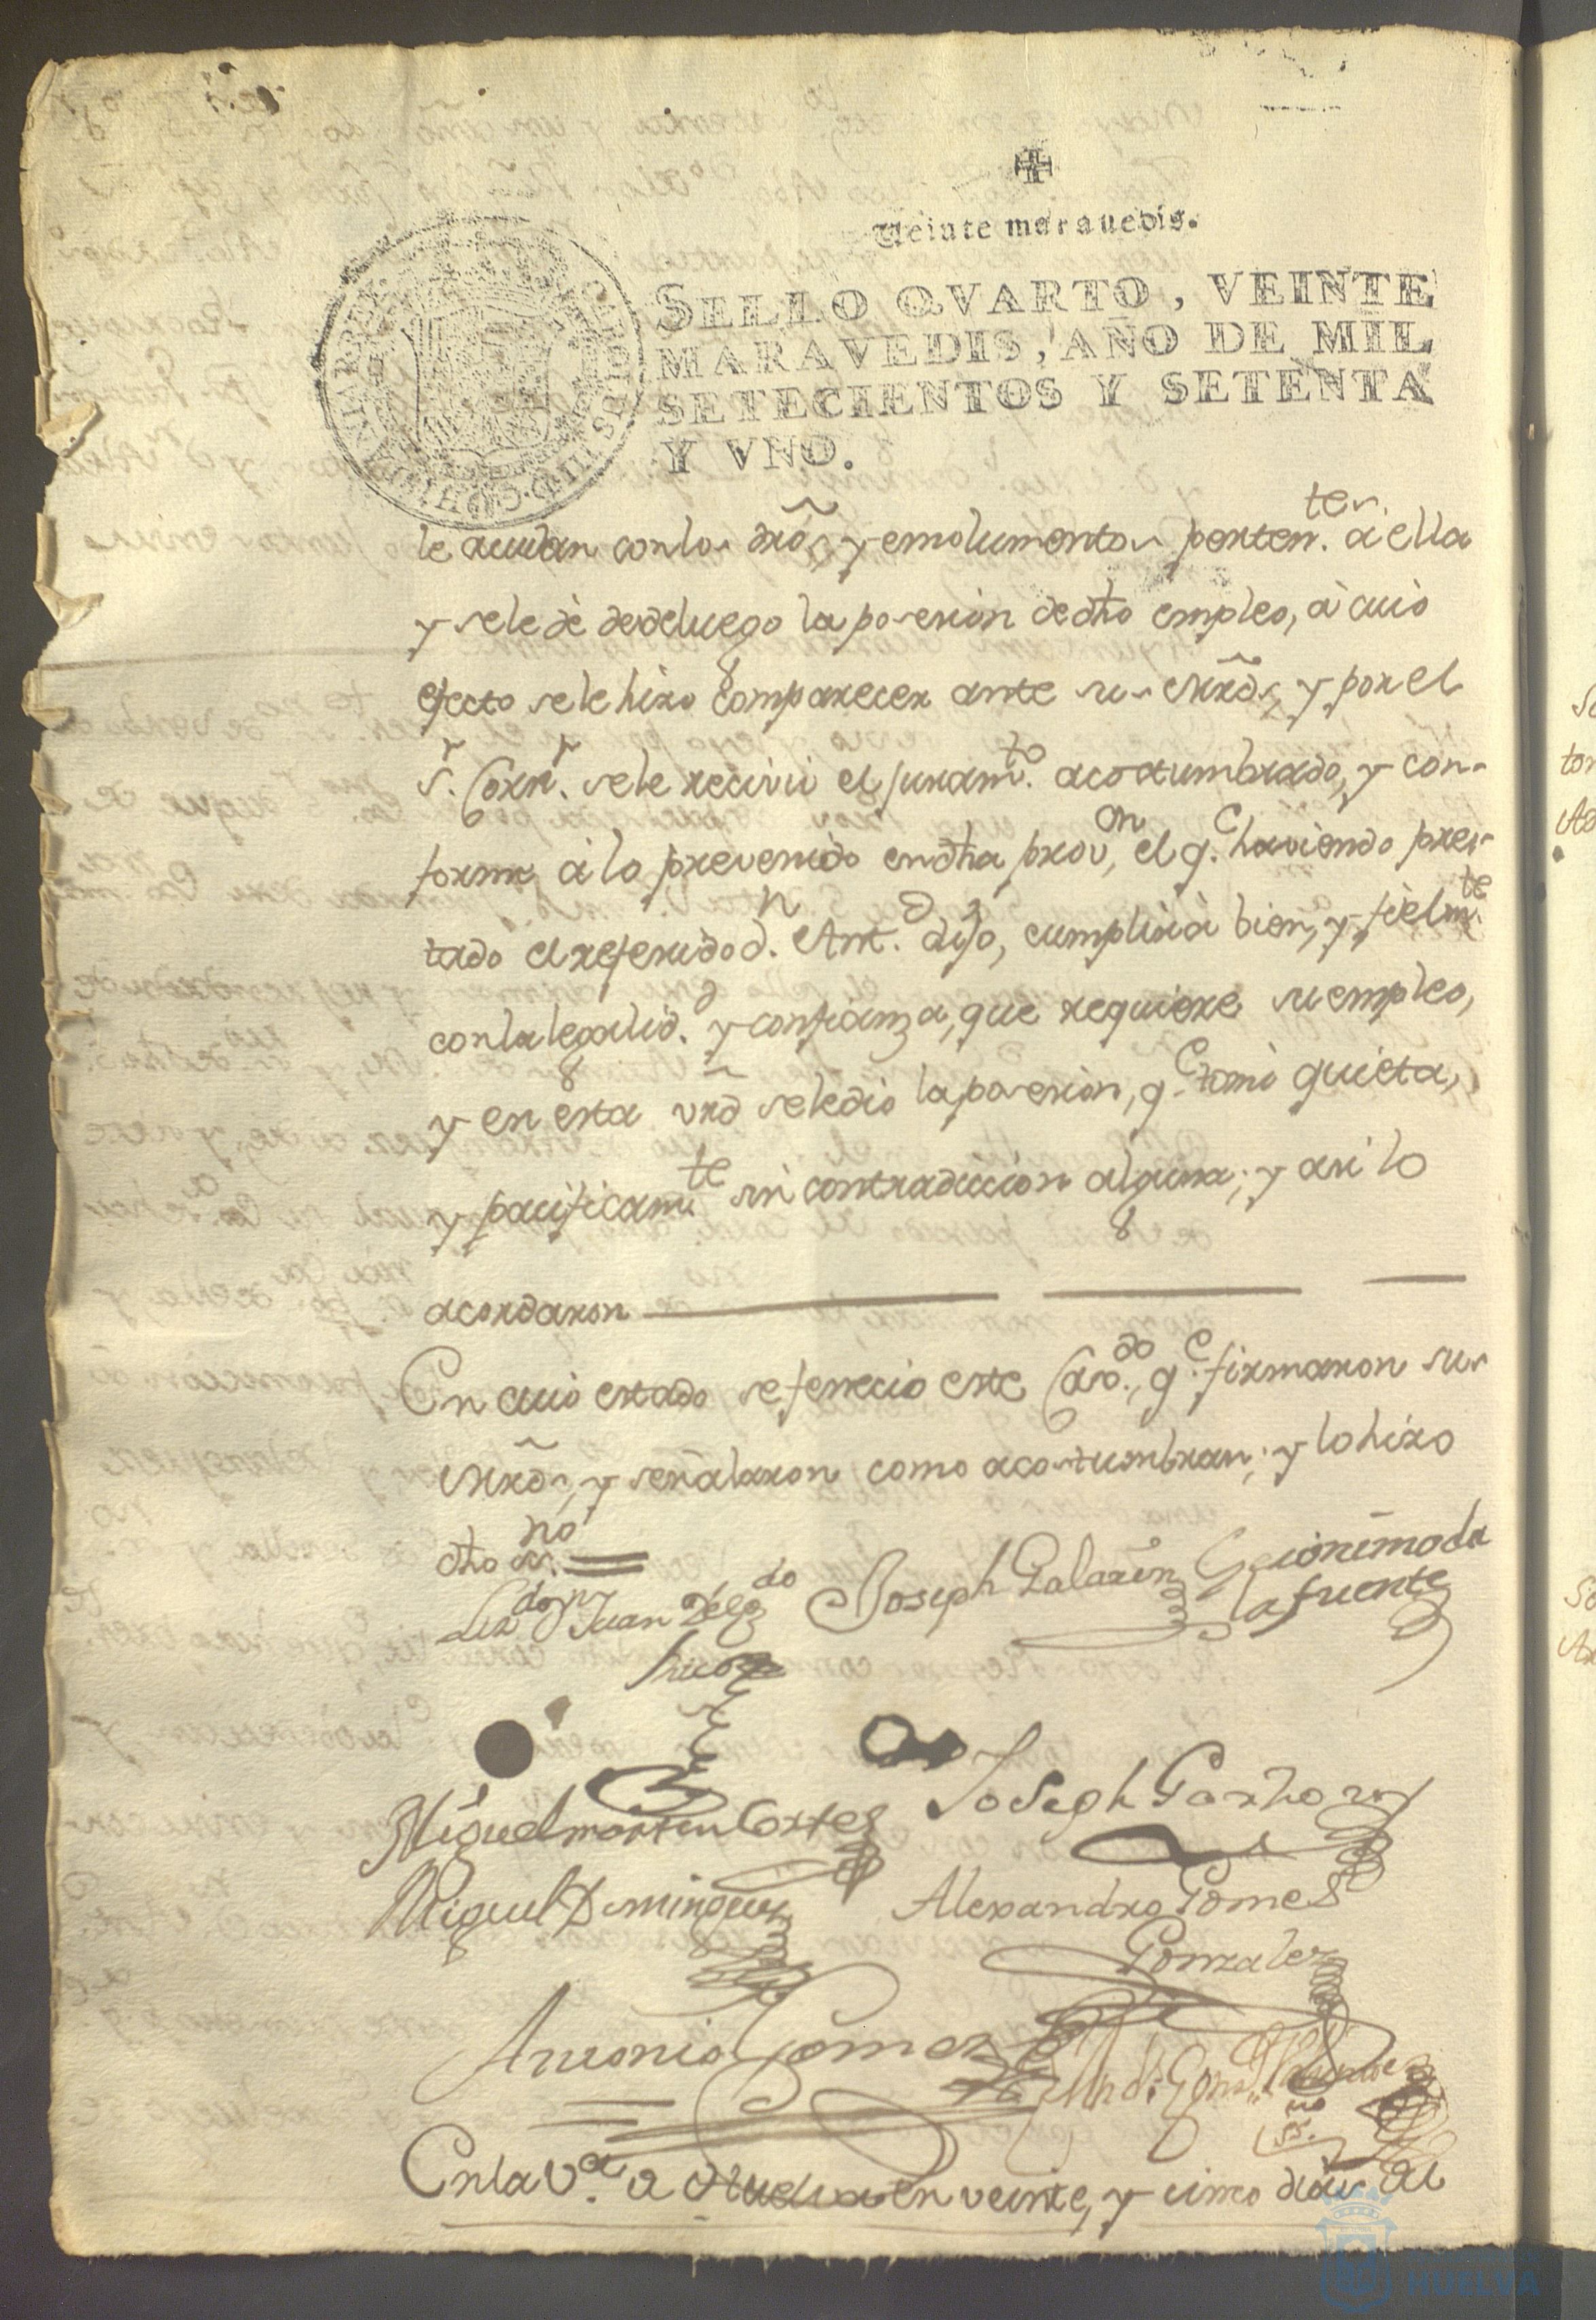 Veinte maravedis.
SELLO QVARTO, VEINTE
MARAVEDIS, AÑO DE MIL
SETECIENTOS Y SETENTA
Y VNO.
le acudan con los dros, y emolumentos perten.tes à ella
y se le dè desde luego la posesion de dho empleo, à cuio
efecto se le hizo comparecer ante sus Mrds, y por el
s.r Corr.r se le recivio el juram.to acostumbrado, y con-
forme à lo prevenido en dha prov.on, el q.e haviendo pres-
tado el referido d.n Ant.o dijo, cumplirà bien, y fielm.te
con la legalid.d y confianza, que requiere su empleo,
y en esta vrd se le dio la posesion, q.e tomò quieta,
y pacificam.te sin contradicion alguna; y asi lo
acordaron
En cuio estado se fenecio este Cav.do, q.e firmaron sus
Mrds, y señalaron como acostumbran; y lo hizo
dho ss.no
Liz.do d.n Juan Delg.do
Joseph Galavin
Geronimo de
la fuente
Miguel martin Cortes
Joseph Garzhon
Miguel Dominguez
Alexandro Gomes
Gonzalez
Antonio Gomez
ss.no
En la V.a de Huelva en veinte, y cinco dias del
HUELVA